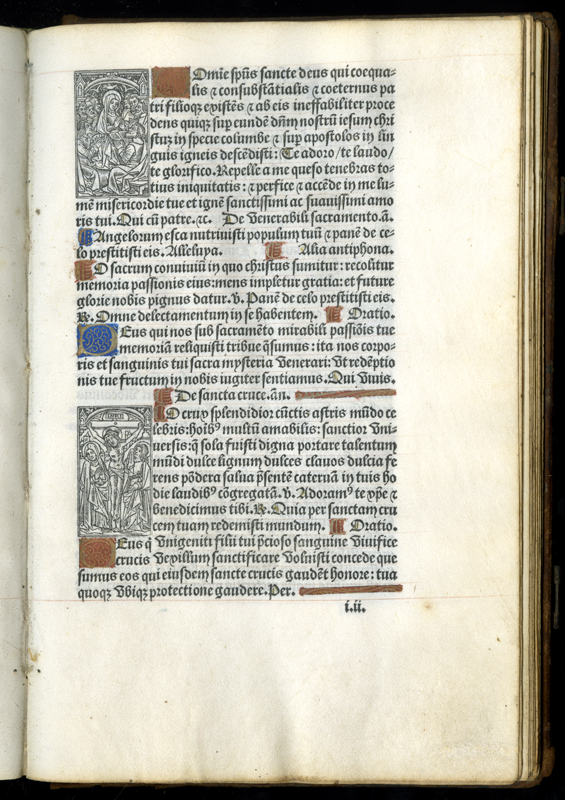 Omīe spūs sancte deus qui coequa-
lis ⁊ consubstātialis ⁊ coeternus pa
tri filioqꝫ existēs ⁊ ab eis ineffabiliter proce
dens quiqꝫ sup eundē dn̄m nostrū iesum chri
stuꝫ in specie columbe ⁊ sup apostolos in lin
guis igneis descēdisti: Te adoro/te laudo/
te glorifico. Repelle a me queso tenebras to-
tius iniquitatis: ⁊ perfice ⁊ accēde in me lu-
mē misericordie tue et ignē sanctissimi ac suavissimi amo
ris tui. Qui cū patre. ⁊c. De venerabili sacramento. ā.
Angelorum esca nutrivisti populum tuū ⁊ panē de ce-
lo prestitisti eis. Alleluya. Alia antiphona.
O sacrum conviviū in quo christus sumitur: recolitur
memoria passionis eius: mens impletur gratia: et future
glorie nobis pignus datur. v. Panē de celo prestitisti eis.
℟. Omne delectamentum in se habentem. Oratio.
Eus qui nos sub sacramēto mirabili passiōis tue
memoriā reliquisti tribue q̄sumus: ita nos corpo-
ris et sanguinis tui sacra mysteria venerari: vt redēptio
nis tue fructum in nobis iugiter sentiamus. Qui vivis.
De sancta cruce. ān.
O crux splendidior cūctis astris mūdo ce
lebris: hoībꝰ multū amabilis: sanctior vni-
versis: q̄ sola fuisti digna portare talentum
mūdi dulce lignum dulces clavos dulcia fe
rens pōdera salva p̄sentē catervā in tuis ho
die laudibꝰ cōgregatā. v. Adoramꝰ te xp̄e ⁊
benedicimus tibi. ℟. Quia per sanctam cru
cem tuam redemisti mundum. Oratio.
Eus q̄ vnigeniti filii tui p̄cioso sanguine vivifice
crucis vexillum sanctificare voluisti concede que
sumus eos qui eiusdem sancte crucis gaudēt honore: tua
quoqꝫ vbiqꝫ protectione gaudere. Per.
i.ii.